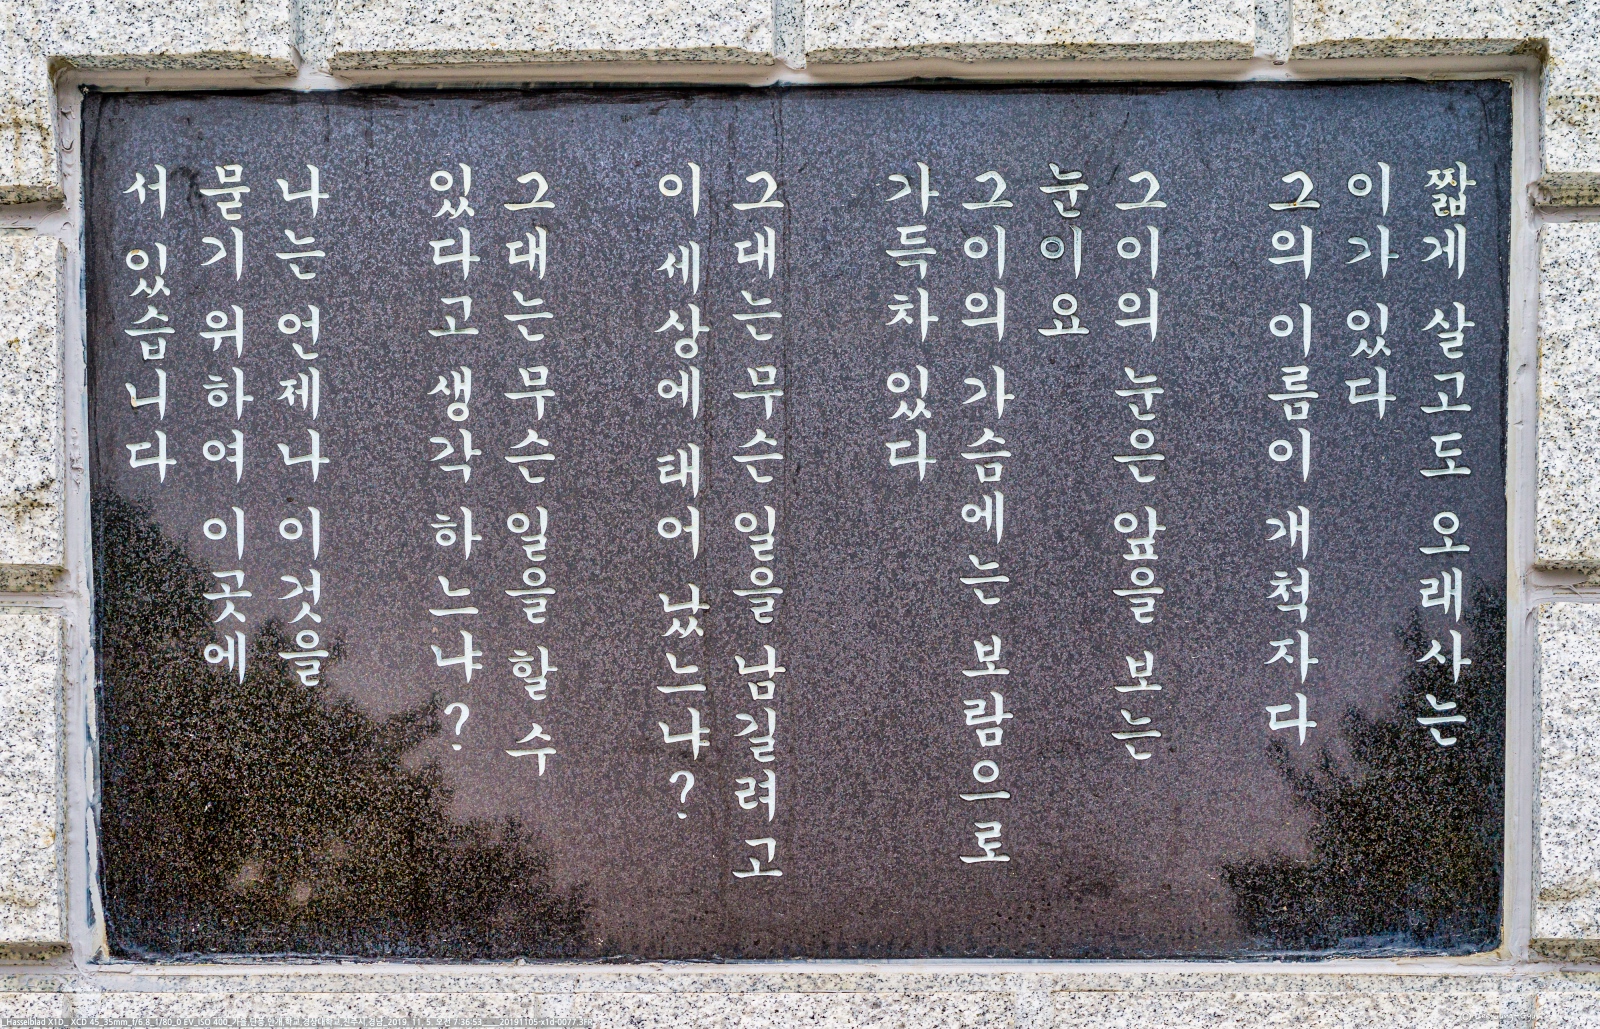 짧게 살고도 오래사는
이가 있다
그의 이름이 개척자다
그이의 눈은 앞을 보는
눈이요
그이의 가슴에는 보람으로
가득차 있다
그대는무슨 일을 남길려고
이 세상에 태어 났느냐?
그대는무슨 일을 할 수
있다고 생각 하느냐?
나는 언제나 이것을
묻기 위하여 이곳에
서 있습니다